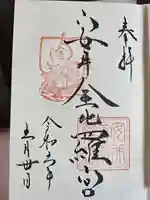 奉拝
安井金比羅宮
令和六年
五月廿日